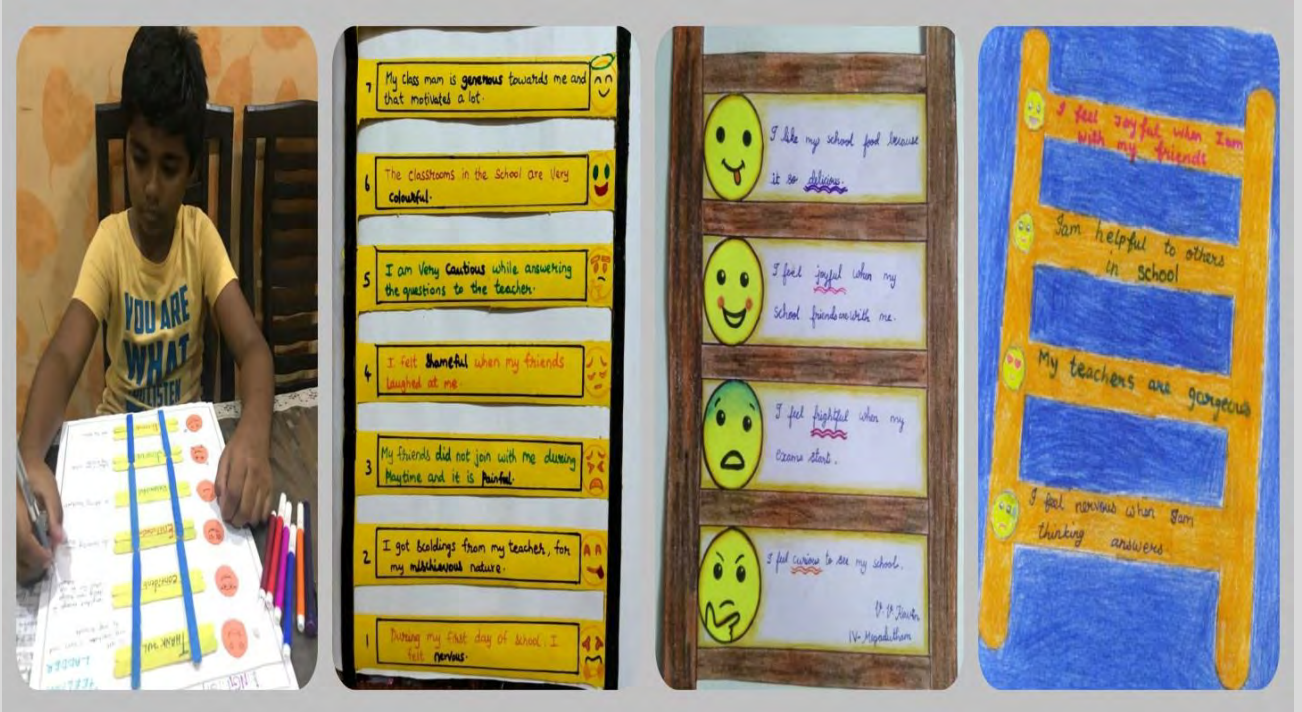 YOU ARE
WHAT
YOU LISTEN
THANKFUL
Confident
LADDER
7 My class mam is generous towards me and
that motivates a lot.
6 The classrooms in the school are very
colourful.
5 I am very cautious while answering
the questions to the teacher.
4 I felt shameful when my friends
laughed at me.
3 My friends did not join with me during
playtime and it is painful.
2 I got scoldings from my teacher, for
my mischievous nature.
1 During my first day of school, I
felt nervous.
I like my school food because
it so delicious.
I feel joyful when my
school friends are with me.
I feel frightful when my
exams start.
I feel curious to see my school.
IV-
I feel Joyful when Iam
with my friends
Iam helpful to others
in school
My teachers are gorgeous
I feel nervous when Iam
thinking answers